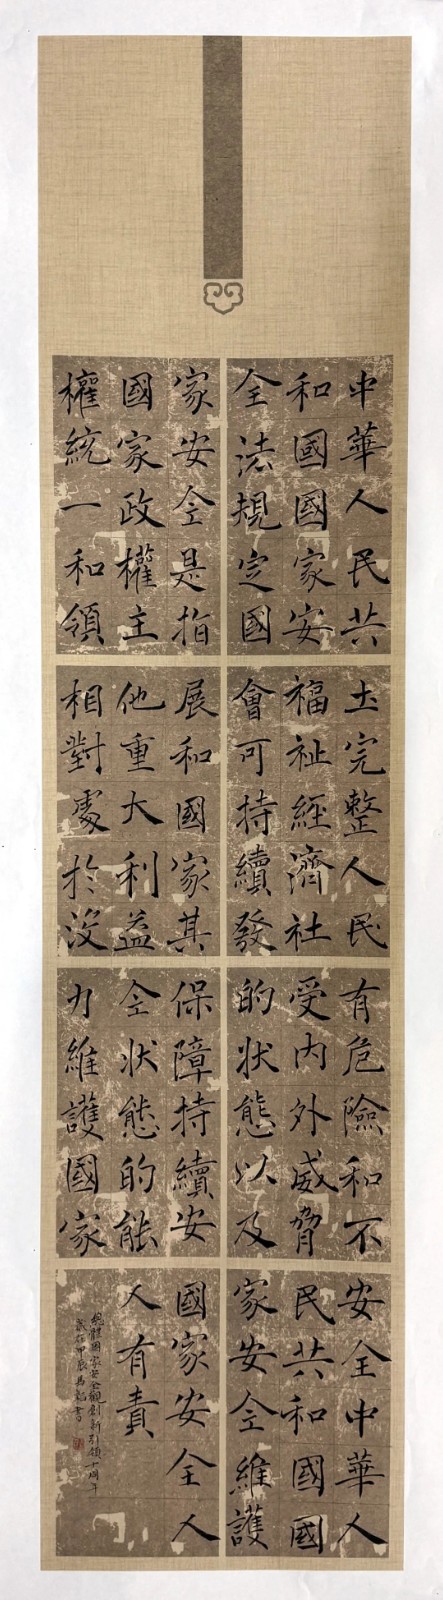 中華人民共
和國國家安
全法規定國
家安全是指
國家政權主
權統一和領
土完整人民
福祉經濟社
會可持續發
展和國家其
他重大利益
相對處於沒
有危險和不
受内外威脅
的狀態以及
保障持續安
全狀態的能
力維護國家
安全中華人
民共和國國
家安全維護
國家安全人
人有責
總體國家安全觀創新引領十周年
歲在甲辰書